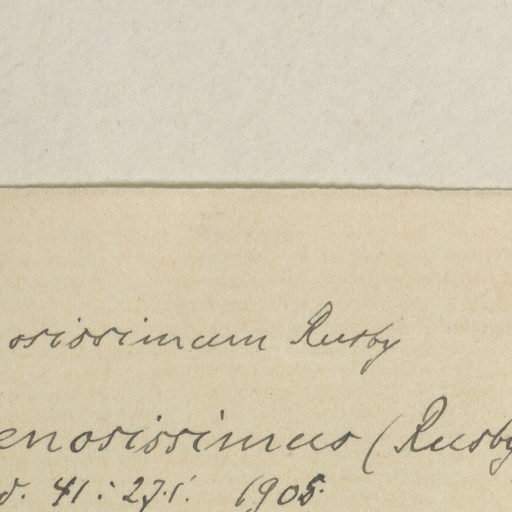 osissimum Rusby
enosissimus (Rusby
d. 41: 271. 1905.